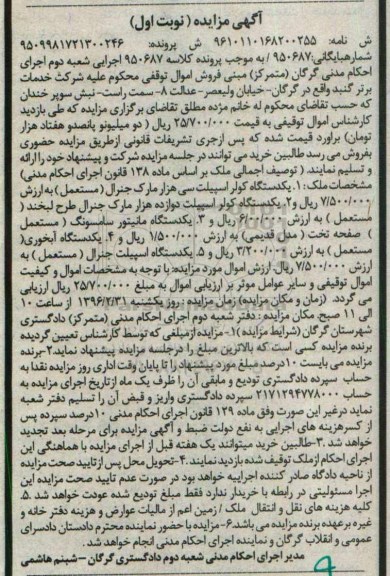 آگهی مزایده ( نوبت اول )
ش نامه: ۹۶۱۰۱۱۰۱۶۸۲۰۰۲۵۵ ش پرونده: ۹۵۰۹۹۸۱۷۲۱۳۰۰۲۴۶
شماره‌بایگانی: ۹۵۰۶۸۷ / به موجب پرونده کلاسه ۹۵۰۶۸۷ اجرایی شعبه دوم اجرای
احکام مدنی گرگان (متمرکز) مبنی فروش اموال توقفی محکوم علیه شرکت خدمات
برتر گنبد واقع در گرگان- خیابان ولیعصر- عدالت ۸- سمت راست- نبش سوپر خندان
که حسب تقاضای محکوم له خانم مژده مطلق تقاضای برگزاری مزایده که طی بازدید
کارشناس اموال توقیفی به قیمت ۲۵/۷۰۰/۰۰۰ ریال ( دو میلیونو پانصدو هفتاد هزار
تومان) براورد قیمت شده که پس ازجری تشریفات قانونی ازطریق مزایده حضوری
بفروش می رسد طالبین خرید می توانند در جلسه مزایده شرکت و پیشنهاد خود را ارائه
و تسلیم نمایند. ( توصیف اجمالی ملک بر اساس ماده ۱۳۸ قانون اجرای احکام مدنی)
مشخصات ملک : ۱. یکدستگاه کولر اسپیلت سی هزار مارک جنرال ( مستعمل ) به ارزش
۷/۵۰۰/۰۰۰ ریال و۲. یکدستگاه کولر اسپیلت دوازده هزار مارک جنرال طرح لبخند (
مستعمل ) به ارزش ۶/۰۰۰/۰۰۰ ریال و ۳. یکدستگاه مانیتور سامسونگ ( مستعمل
) صفحه تخت ( مدل قدیمی) به ارزش ۱/۵۰۰/۰۰۰ ریال و ۴. یکدستگاه آبخوری(
مستعمل ) به ارزش ۳/۲۰۰/۰۰۰ ریال و ۵. یکدستگاه اسپیلت جنرال ( مستعمل ) به
ارزش ۷/۵۰۰/۰۰۰ ریال. ارزش اموال مورد مزایده: با توجه به مشخصات اموال و کیفیت
اموال توقیفی و سایر عوامل موثر بر ارزیابی اموال به مبلغ ۲۵/۷۰۰/۰۰۰ ریال ارزیابی
می گردد. (زمان و مکان مزایده) زمان مزایده : روز یکشنبه ۱۳۹۶/۲/۳۱ از ساعت ۱۰
الی ۱۱ صبح. مکان مزایده : دفتر شعبه دوم اجرای احکام مدنی (متمرکز) دادگستری
شهرستان گرگان (شرایط مزایده) ۱- مزایده ازمبلغی که توسط کارشناس تعیین گردیده
برنده مزایده کسی است که بالاترین مبلغ را درجلسه مزایده پیشنهاد نماید.۲-برنده
مزایده می بایست ۱۰درصد مبلغ مورد پیشنهاد را تا پایان وقت اداری روز مزایده نقدا به
حساب سپرده دادگستری تودیع و مابقی آن را ظرف یک ماه ازتاریخ اجرای مزایده به
حساب ۲۱۷۱۲۹۴۷۷۸۰۰۰ سپرده دادگستری واریز و قبض آن را تسلیم دفتر شعبه
نماید درغیر این صورت وفق ماده ۱۲۹ قانون اجرای احکام مدنی ۱۰درصد سپرده پس
از کسرهزینه های اجرایی به نفع دولت ضبط و آگهی مزایده برای مرحله بعد تجدید
خواهد شد .۳-طالبین خرید میتوانند یک هفته قبل از اجرای مزایده با هماهنگی این
اجرای احکام ازملک توقیف شده بازدید نمایند.۴-تحویل محل پس ازتایید صحت مزایده
از ناحیه دادگاه صادر کننده اجراییه خواهد بود در صورت عدم تایید صحت مزایده این
اجرا مسئولیتی در رابطه با خریدار ندارد فقط مبلغ تودیع شده عودت خواهد شد .۵.
کلیه هزینه های نقل و انتقال ملک / زمین اعم از مالیات عوارض و هزینه دفتر خانه و
غیره برعهده برنده مزایده می باشد.۶-مزایده با حضور نماینده محترم دادستان دادسرای
عمومی و انقلاب گرگان و نماینده اجرای احکام مدنی انجام خواهد شد.
مدیر اجرای احکام مدنی شعبه دوم دادگستری گرگان –شبنم هاشمی
۹